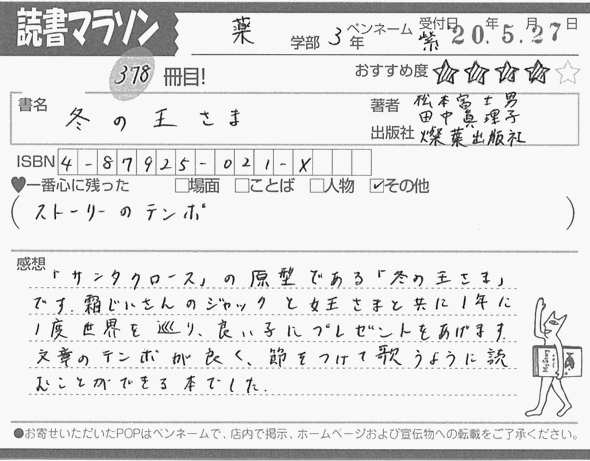 読書マラソン
薬 学部 3年 ペンネーム 紫 受付日 20年 5月 27日
378 冊目! おすすめ度 ★★★★☆
書名 冬の王さま 著者 松本富士男
田中真理子
出版社 燦葉出版社
ISBN 4-87925-021-X
♥一番心に残った □場面 □ことば □人物 ☑その他
(ストーリーのテンポ)
感想
「サンタクロース」の原型である「冬の王さま」
です.霜じいさんのジャックと女王さまと共に1年に
1度世界を巡り、良い子にプレゼントをあげます.
文章のテンポが良く、節をつけて歌うように読
むことができる本でした.
●お寄せいただいたPOPはペンネームで、店内で掲示、ホームページおよび宣伝物への転載をご了承ください。